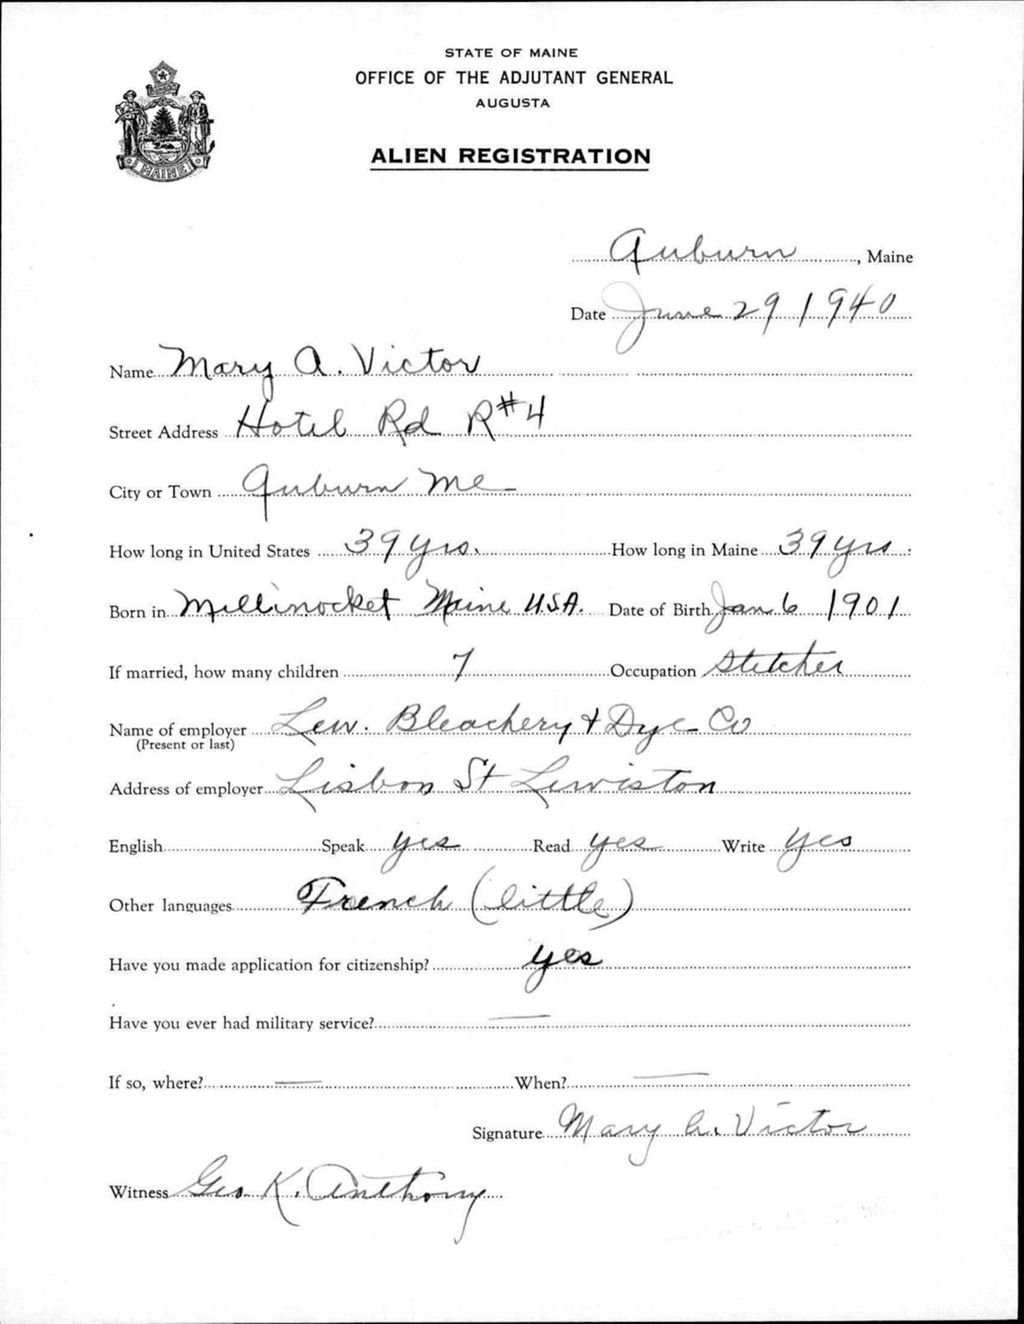 STATE OF MAINE
OFFICE OF THE ADJUTANT GENERAL
AUGUSTA
MAINE
ALIEN REGISTRATION
Auburn, Maine
Date June 29 1940
Name Mary A. Victor
Street Address Hotel Rd R#4
City or Town Auburn Me
How long in United States 39 yrs. How long in Maine 39 yrs
Born in Millinocket Maine USA. Date of Birth Jan 6 1901
If married, how many children 7 Occupation Stitcher
Name of employer Lew. Bleachery & Dye Co
(Present or last)
Address of employer Lisbon St Lewiston
English Speak yes Read yes Write yes
Other languages French (little)
Have you made application for citizenship? yes
Have you ever had military service? —
If so, where? — When? —
Signature Mary A. Victor
Witness Geo K. Anthony